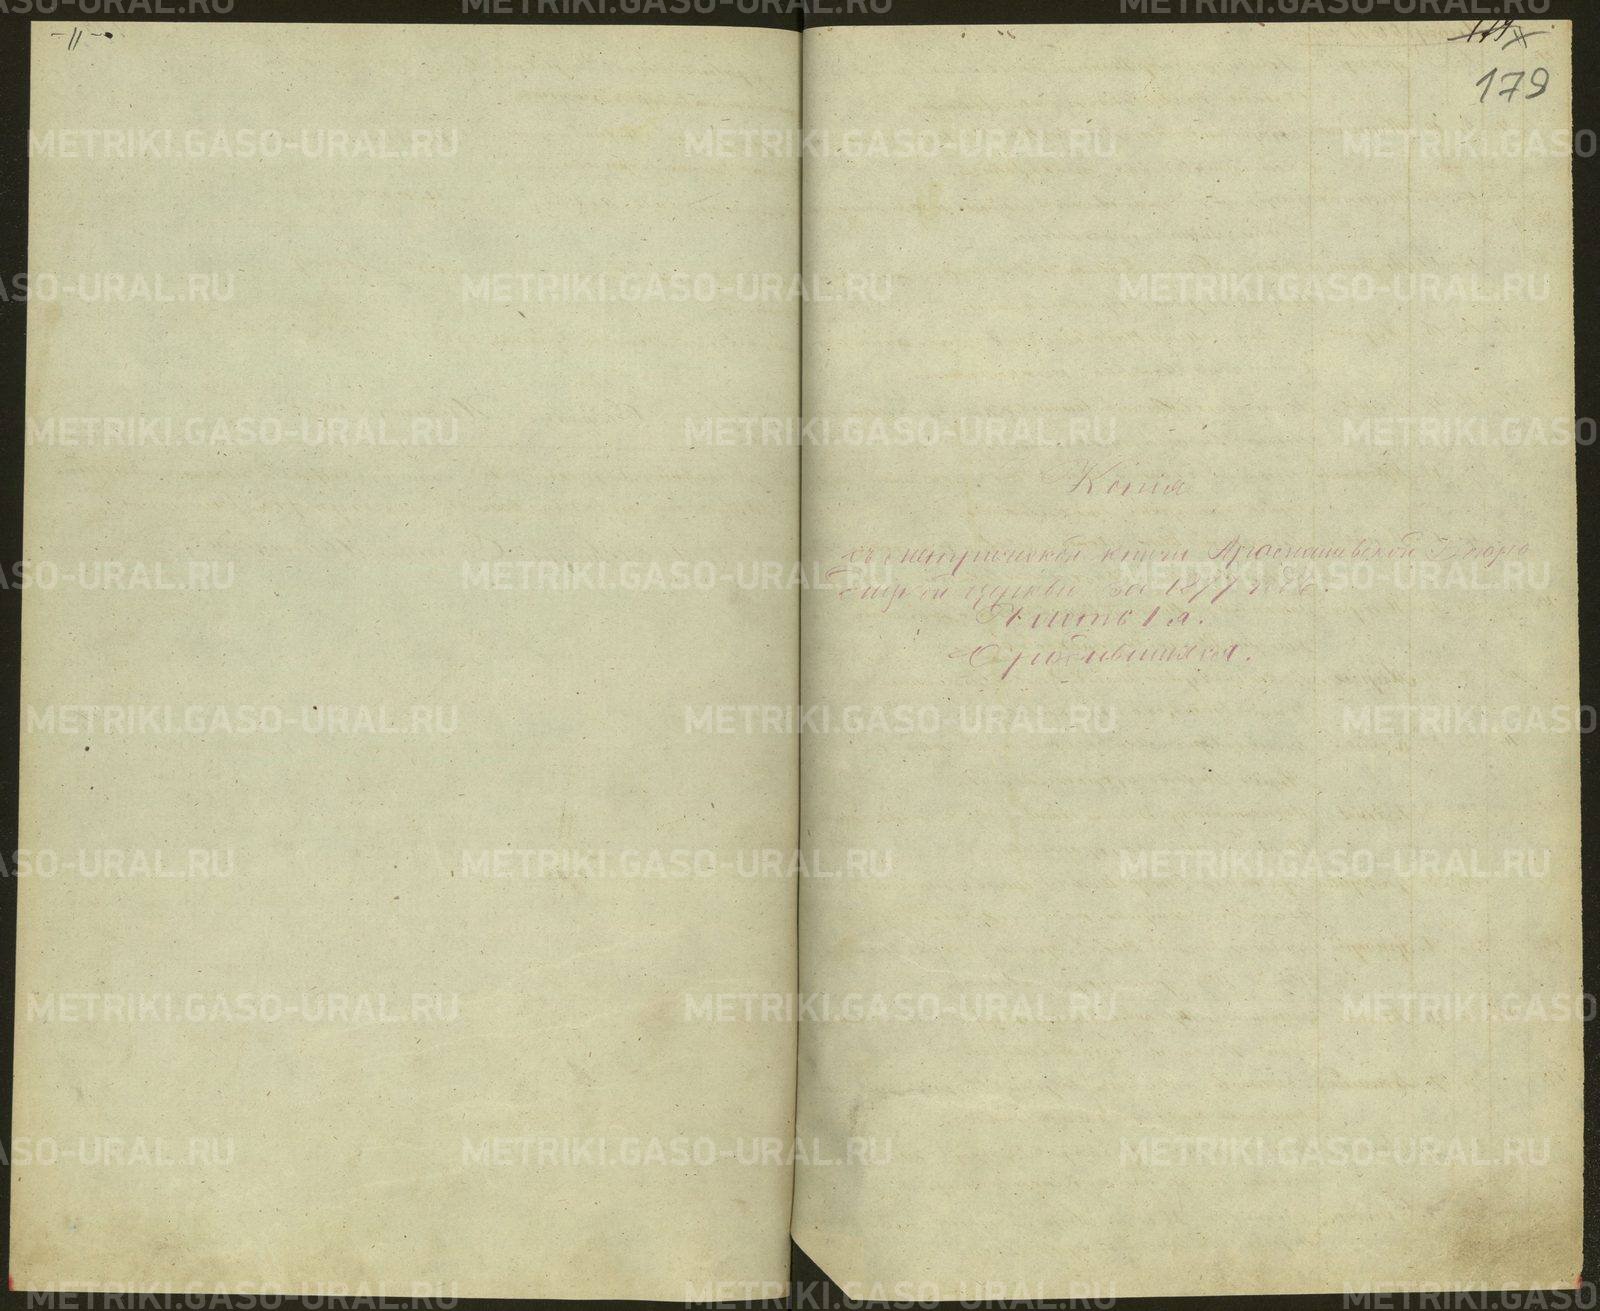 179
Копія
съ метрической книги Арамашевской Богоро
дицкой церкви за 1877 годъ.
Часть 1я.
О родившихся.
METRIKI.GASO-URAL.RU